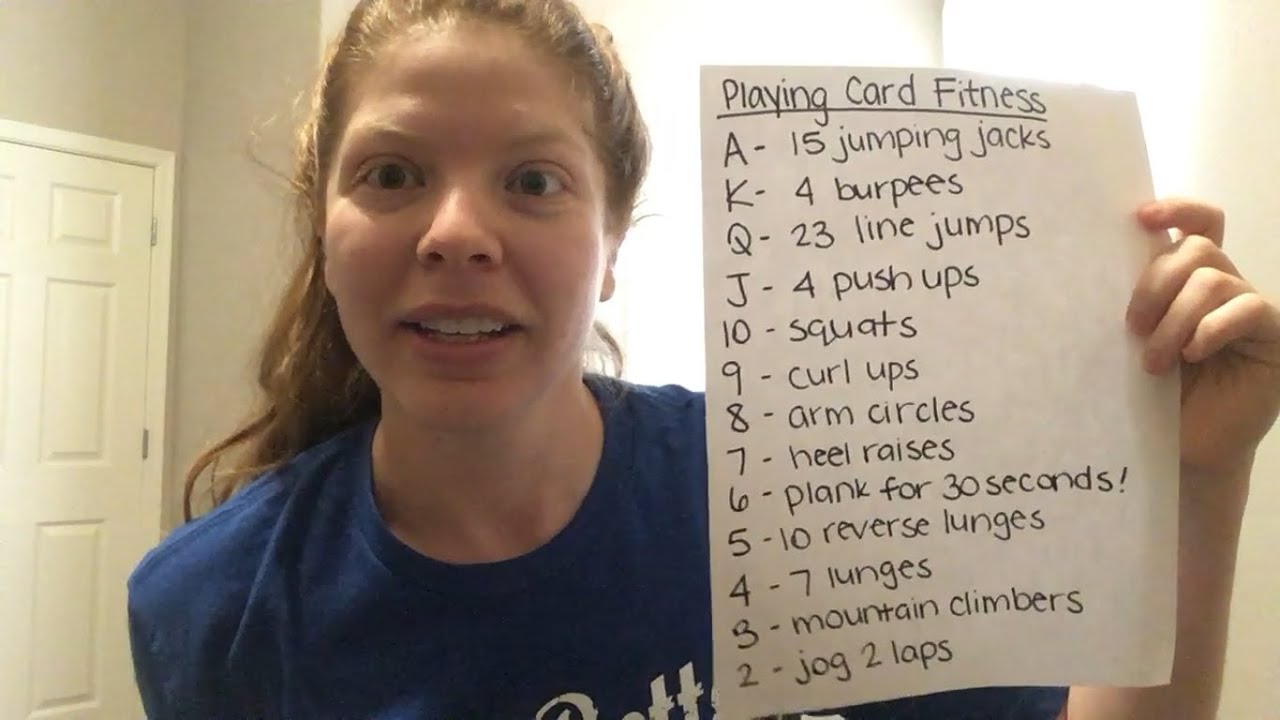 Playing Card Fitness
A - 15 jumping jacks
K - 4 burpees
Q - 23 line jumps
J - 4 push ups
10 - squats
9 - curl ups
8 - arm circles
7 - heel raises
6 - plank for 30 seconds!
5 - 10 reverse lunges
4 - 7 lunges
3 - mountain climbers
2 - jog 2 laps